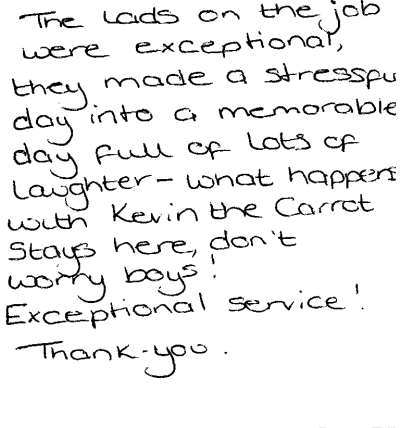 The Lads on the job
were exceptional,
they made a stressfu
day into a memorable
day full of lots of
laughter - what happens
with Kevin the Carrot
stays here, don't
worry boys!
Exceptional service!
Thank-you.